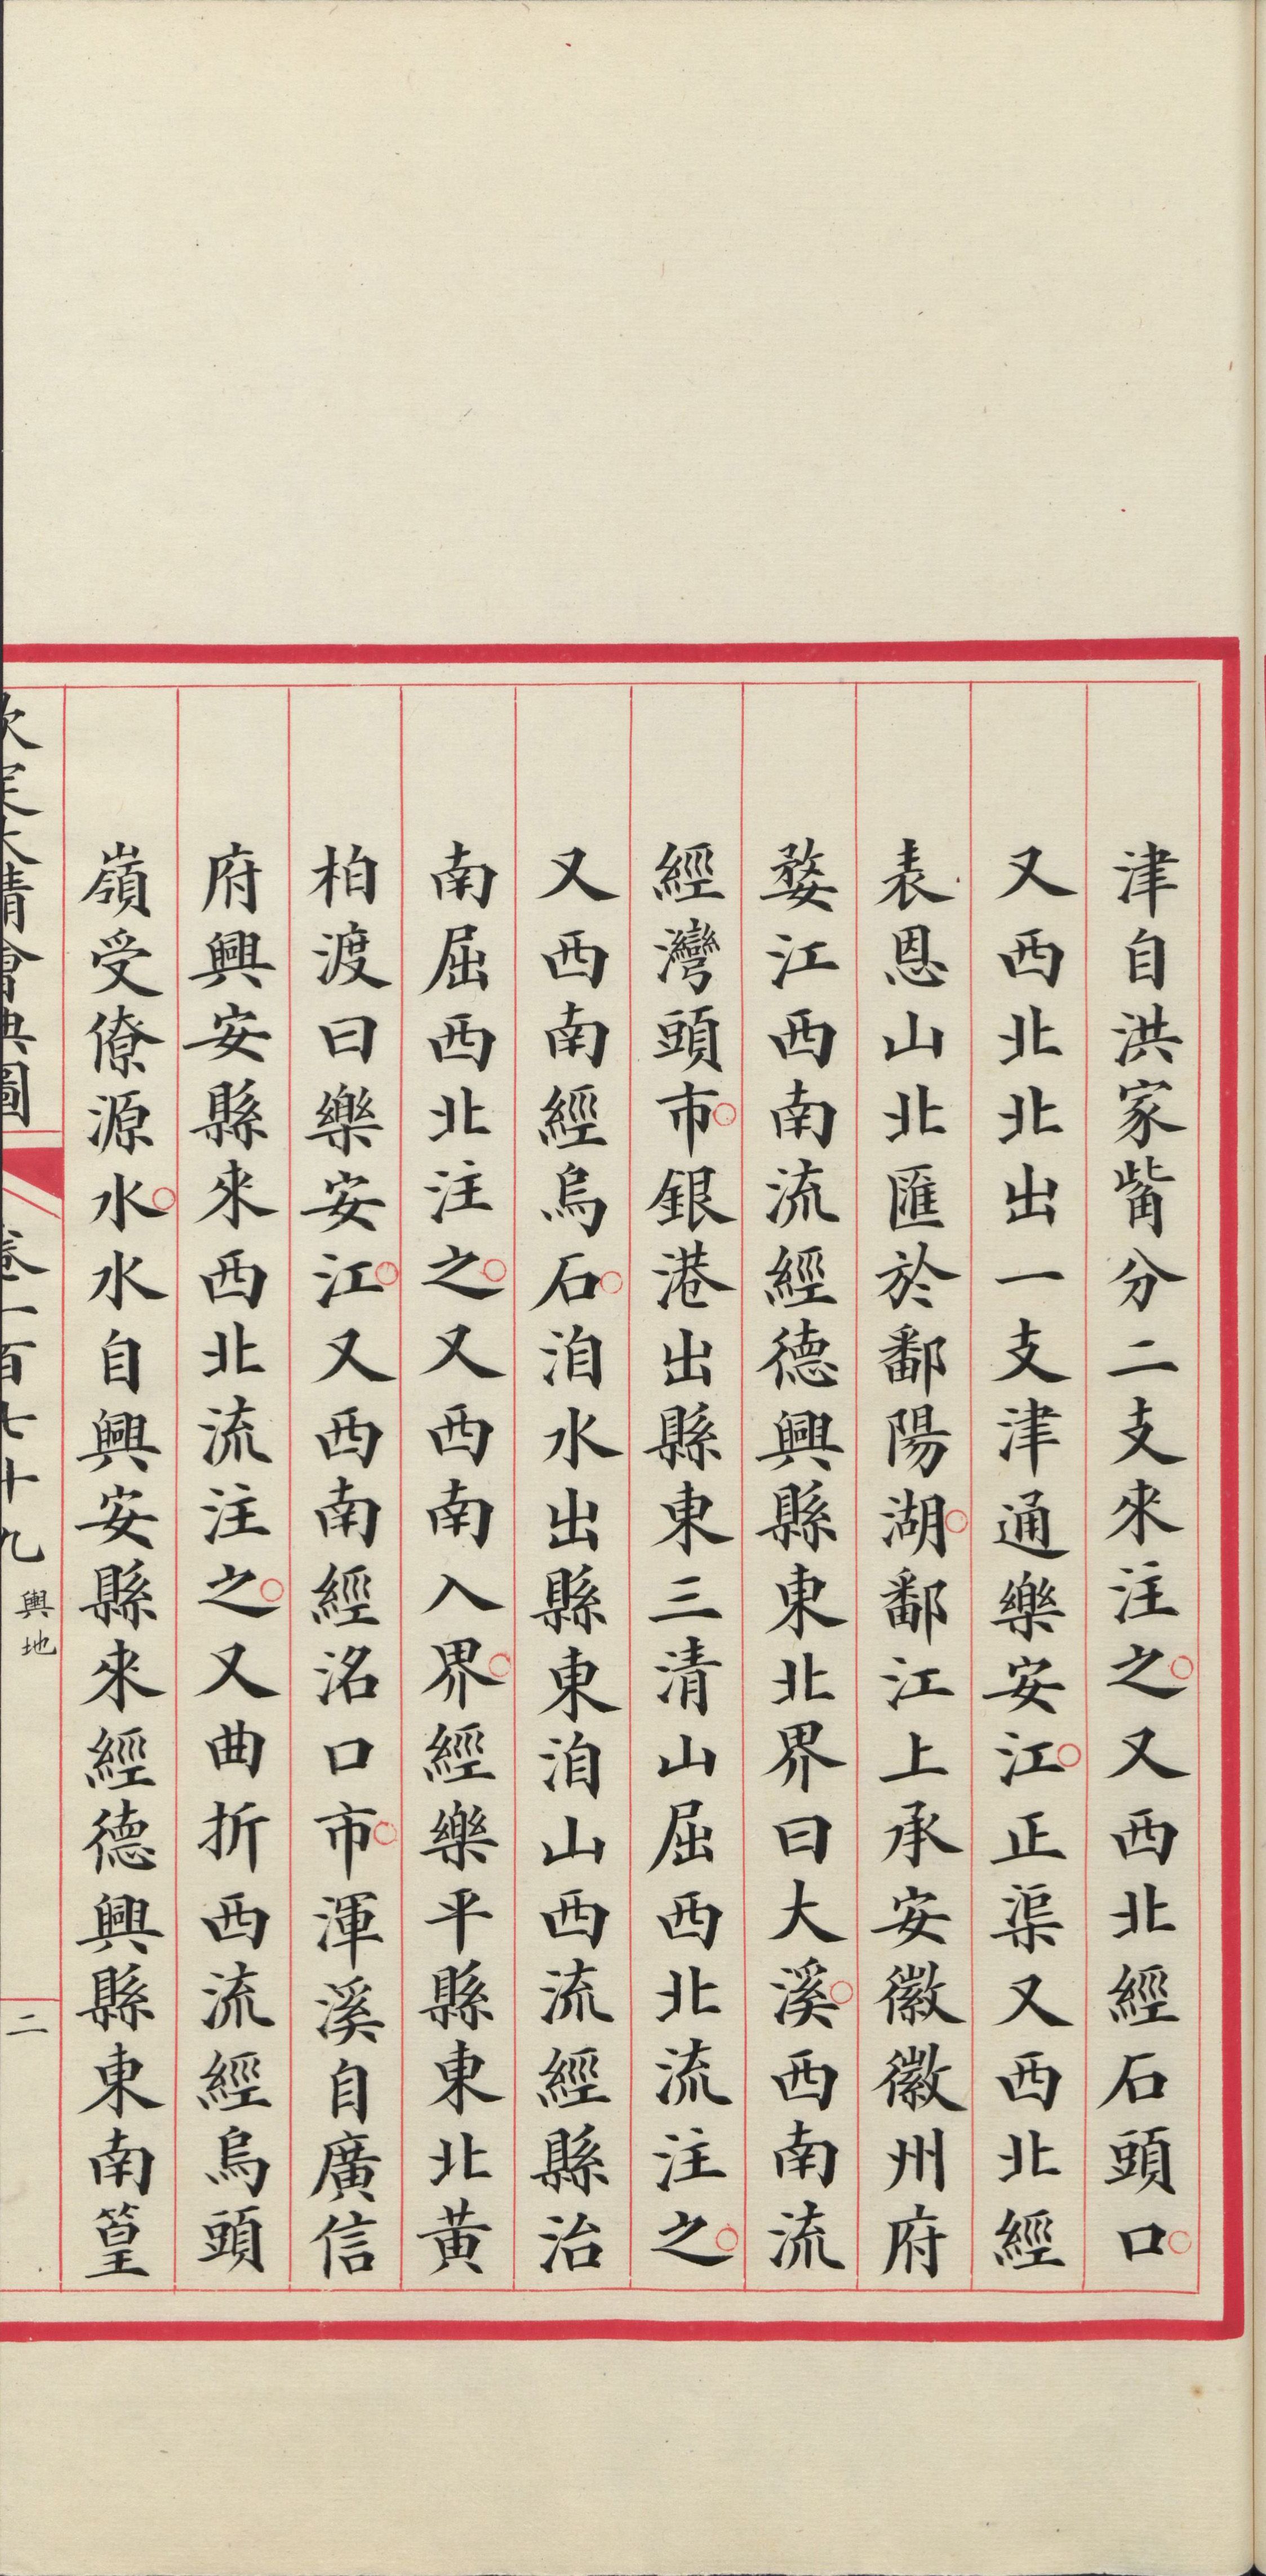 津自洪家觜分二支來注之。又西北經石頭口。
又西北北出一支津通樂安江。正渠又西北經
表恩山北匯於鄱陽湖。鄱江上承安徽徽州府
婺江西南流經德興縣東北界曰大溪。西南流
經灣頭市。銀港出縣東三清山屈西北流注之。
又西南經烏石。洎水出縣東洎山西流經縣治
南屈西北注之。又西南入界。經樂平縣東北黃
柏渡曰樂安江。又西南經洺口市。渾溪自廣信
府興安縣來西北流注之。又曲折西流經烏頭
嶺受僚源水。水自興安縣來經德興縣東南篁
欽定大清會典圖 卷一百七十九 輿地 二